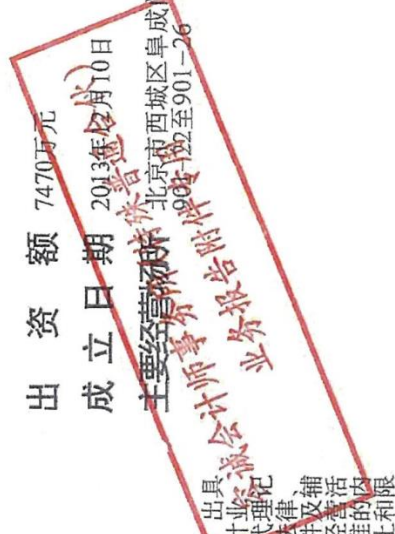 出资额 7470万元
成立日期 2013年12月10日
主要经营场所 北京市西城区阜成
901-22至901-26
诚会计师事务所(特殊普通合伙)
业务报告附件专用
出具
计业
代理记
法律、
件及辅
经营活
准的内
止和限